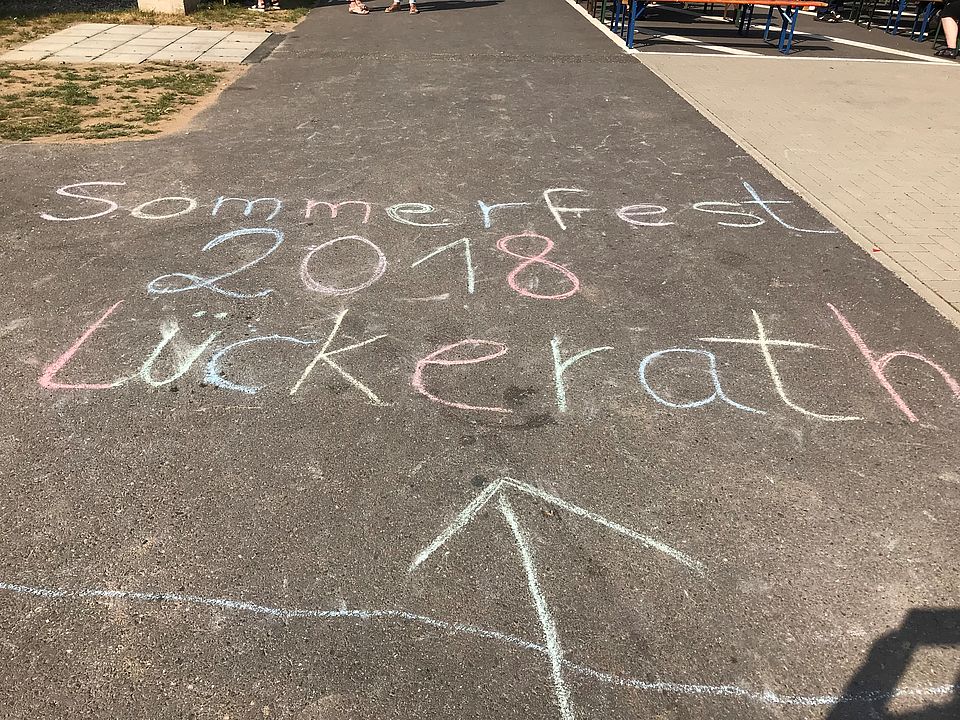 Sommerfest
2018
Lückerath